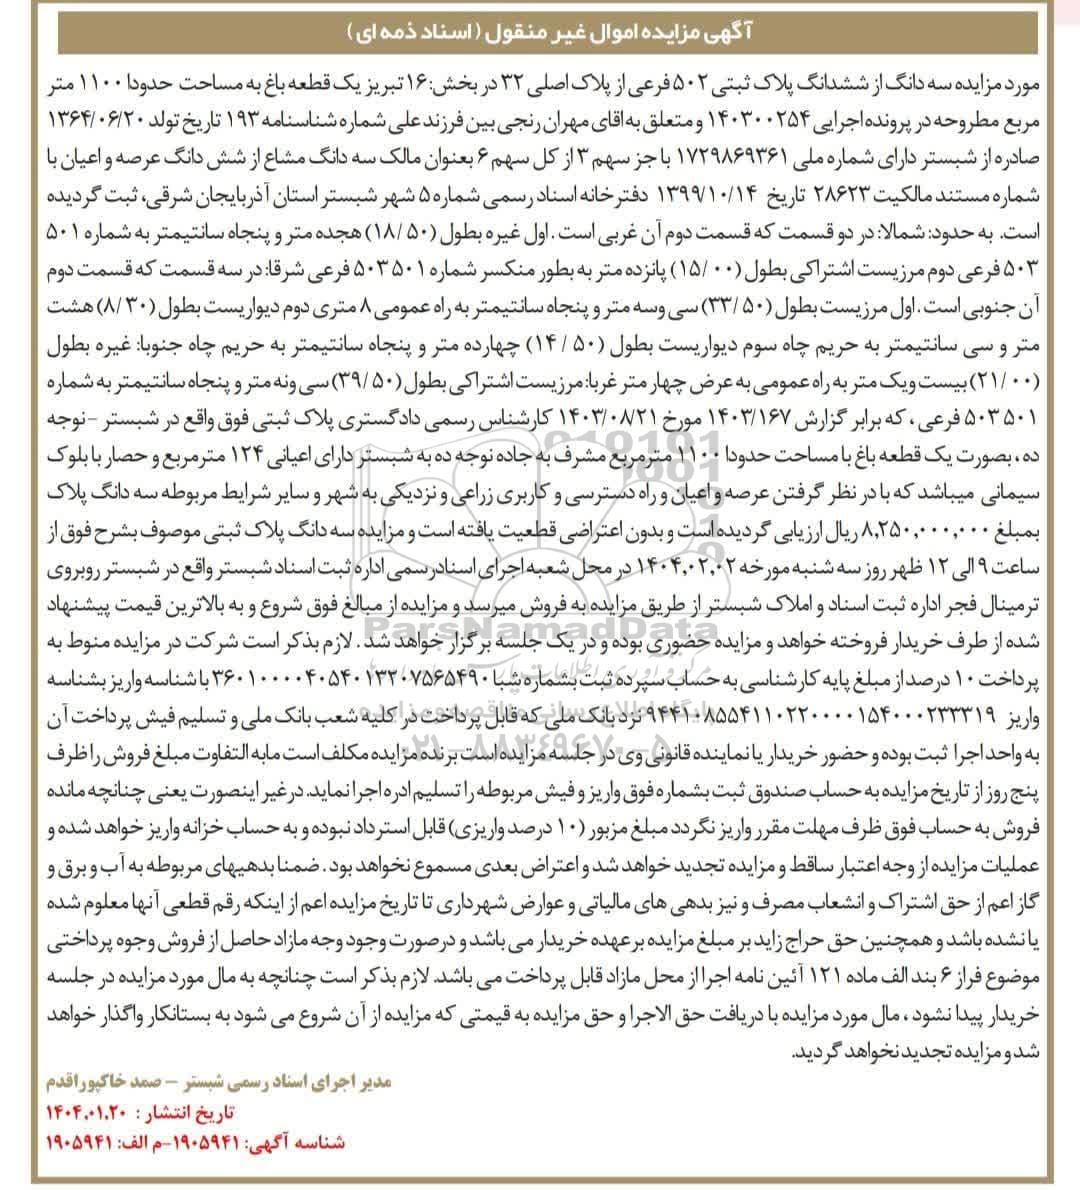 آگهی مزایده اموال غیر منقول (اسناد ذمه ای)
مورد مزایده سه دانگ از ششدانگ پلاک ثبتی ۵۰۲ فرعی از پلاک اصلی ۳۲ در بخش: ۱۶ تبریز یک قطعه باغ به مساحت حدودا ۱۱۰۰ متر
مربع مطروحه در پرونده اجرایی ۱۴۰۳۰۰۲۵۴ و متعلق به اقای مهران رنجی بین فرزند علی شماره شناسنامه ۱۹۳ تاریخ تولد ۱۳۶۴/۰۶/۲۰
صادره از شبستر دارای شماره ملی ۱۷۲۹۸۶۹۳۶۱ با جز سهم ۳ از کل سهم ۶ بعنوان مالک سه دانگ مشاع از شش دانگ عرصه و اعیان با
شماره مستند مالکیت ۲۸۶۲۳ تاریخ ۱۳۹۹/۱۰/۱۴ دفترخانه اسناد رسمی شماره ۵ شهر شبستر استان آذربایجان شرقی، ثبت گردیده
است. به حدود: شمالا: در دو قسمت که قسمت دوم آن غربی است. اول غیره بطول (۱۸/۵۰) هجده متر و پنجاه سانتیمتر به شماره ۵۰۱
۵۰۳ فرعی دوم مرزیست اشتراکی بطول (۱۵/۰۰) پانزده متر به بطور منکسر شماره ۵۰۱ ۵۰۳ فرعی شرقا: در سه قسمت که قسمت دوم
آن جنوبی است. اول مرزیست بطول (۳۳/۵۰) سی وسه متر و پنجاه سانتیمتر به راه عمومی ۸ متری دوم دیواریست بطول (۸/۳۰) هشت
متر و سی سانتیمتر به حریم چاه سوم دیواریست بطول (۱۴/۵۰) چهارده متر و پنجاه سانتیمتر به حریم چاه جنوبا: غیره بطول
(۲۱/۰۰) بیست ویک متر به راه عمومی به عرض چهار متر غربا: مرزیست اشتراکی بطول (۳۹/۵۰) سی ونه متر و پنجاه سانتیمتر به شماره
۵۰۱ ۵۰۳ فرعی، که برابر گزارش ۱۴۰۳/۱۶۷ مورخ ۱۴۰۳/۰۸/۲۱ کارشناس رسمی دادگستری پلاک ثبتی فوق واقع در شبستر -نوجه
ده، بصورت یک قطعه باغ با مساحت حدودا ۱۱۰۰ مترمربع مشرف به جاده نوجه ده به شبستر دارای اعیانی ۱۲۴ مترمربع و حصار با بلوک
سیمانی میباشد که با در نظر گرفتن عرصه و اعیان و راه دسترسی و کاربری زراعی و نزدیکی به شهر و سایر شرایط مربوطه سه دانگ پلاک
بمبلغ ۸,۲۵۰,۰۰۰,۰۰۰ ریال ارزیابی گردیده است و بدون اعتراضی قطعیت یافته است و مزایده سه دانگ پلاک ثبتی موصوف بشرح فوق از
ساعت ۹ الی ۱۲ ظهر روز سه شنبه مورخه ۱۴۰۴,۰۲,۰۲ در محل شعبه اجرای اسنادرسمی اداره ثبت اسناد شبستر واقع در شبستر روبروی
ترمینال فجر اداره ثبت اسناد و املاک شبستر از طریق مزایده به فروش میرسد و مزایده از مبالغ فوق شروع و به بالاترین قیمت پیشنهاد
شده از طرف خریدار فروخته خواهد و مزایده حضوری بوده و در یک جلسه برگزار خواهد شد. لازم بذکر است شرکت در مزایده منوط به
پرداخت ۱۰ درصد از مبلغ پایه کارشناسی به حساب سپرده ثبت بشماره شبا ۳۶۰۱۰۰۰۰۴۰۵۴۰۱۳۲۰۷۵۶۵۴۹۰ با شناسه واریز بشناسه
واریز ۹۴۴۱۰۸۵۵۴۱۱۰۲۲۰۰۰۰۱۵۴۰۰۰۲۳۳۳۱۹ نزد بانک ملی که قابل پرداخت در کلیه شعب بانک ملی و تسلیم فیش پرداخت آن
به واحد اجرا ثبت بوده و حضور خریدار یا نماینده قانونی وی در جلسه مزایده است برنده مزایده مکلف است مابه التفاوت مبلغ فروش را ظرف
پنج روز از تاریخ مزایده به حساب صندوق ثبت بشماره فوق واریز و فیش مربوطه را تسلیم ادره اجرا نماید. درغیر اینصورت یعنی چنانچه مانده
فروش به حساب فوق ظرف مهلت مقرر واریز نگردد مبلغ مزبور (۱۰ درصد واریزی) قابل استرداد نبوده و به حساب خزانه واریز خواهد شده و
عملیات مزایده از وجه اعتبار ساقط و مزایده تجدید خواهد شد و اعتراض بعدی مسموع نخواهد بود. ضمنا بدهیهای مربوطه به آب و برق و
گاز اعم از حق اشتراک و انشعاب مصرف و نیز بدهی های مالیاتی و عوارض شهرداری تا تاریخ مزایده اعم از اینکه رقم قطعی آنها معلوم شده
یا نشده باشد و همچنین حق حراج زاید بر مبلغ مزایده برعهده خریدار می باشد و درصورت وجود وجه مازاد حاصل از فروش وجوه پرداختی
موضوع فراز ۶ بند الف ماده ۱۲۱ آئین نامه اجرا از محل مازاد قابل پرداخت می باشد. لازم بذکر است چنانچه به مال مورد مزایده در جلسه
خریدار پیدا نشود، مال مورد مزایده با دریافت حق الاجرا و حق مزایده به قیمتی که مزایده از آن شروع می شود به بستانکار واگذار خواهد
شد و مزایده تجدید نخواهد گردید.
مدیر اجرای اسناد رسمی شبستر - صمد خاکپوراقدم
تاریخ انتشار : ۱۴۰۴,۰۱,۲۰
شناسه آگهی: ۱۹۰۵۹۴۱-م الف: ۱۹۰۵۹۴۱
ParsNamadData
پایگاه اطلاع رسانی مناقصه و مزایده
۰۲۱-۸۸۳۴۹۶۷۰-۵